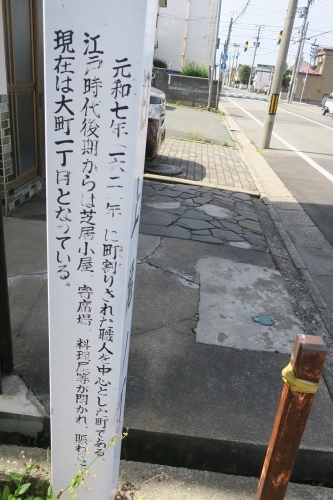 元和七年(一六二一年)に町割りされた職人を中心とした町である。
江戸時代後期からは芝居小屋、寄席場、料理屋等が開かれ、賑わ
現在は大町一丁目となっている。